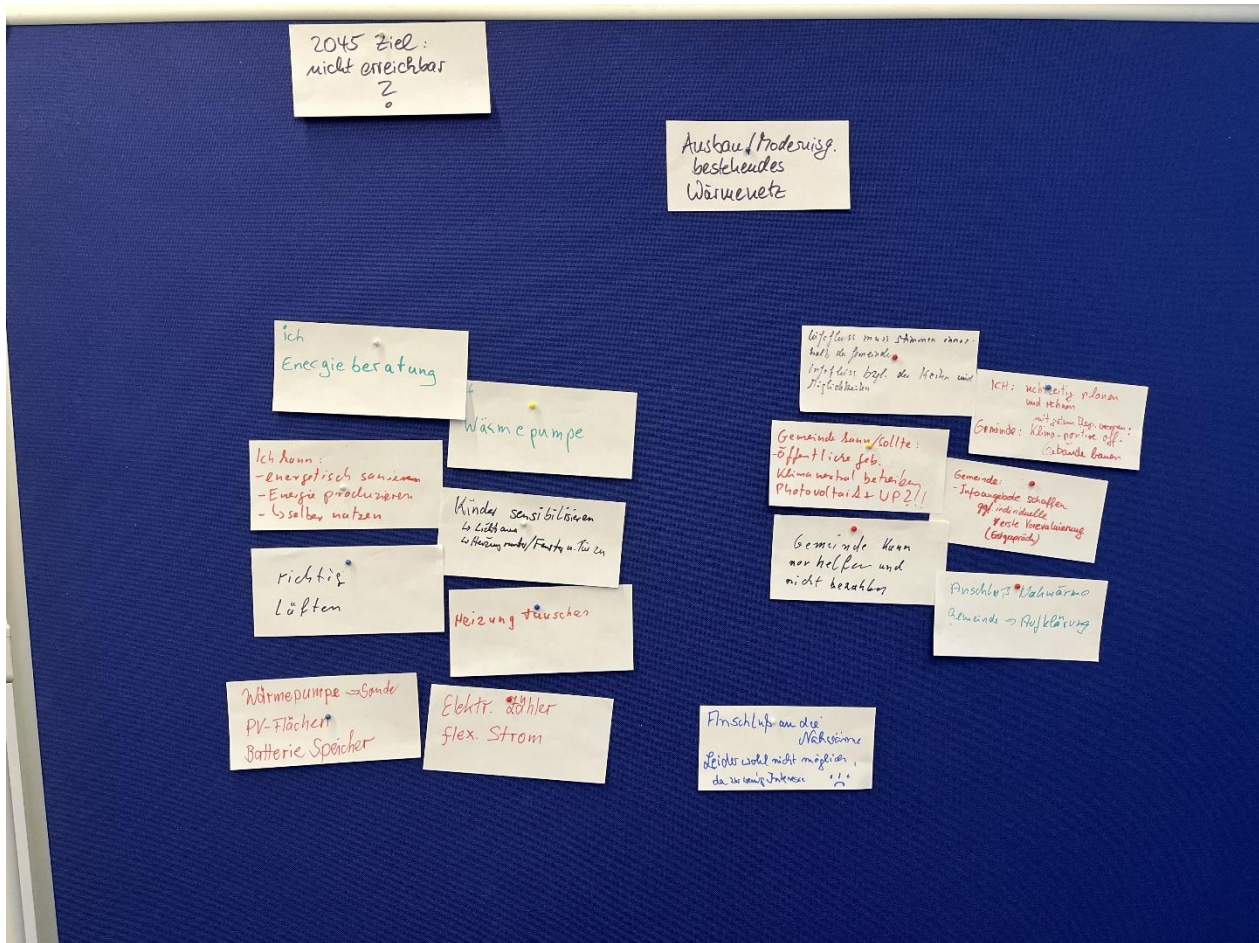 2045 Ziel:
nicht erreichbar
?
Ausbau/Modernisg.
bestehendes
Wärmenetz
ich
Energieberatung
Wärmepumpe
Ich kann:
- energetisch sanieren
- Energie produzieren
- ↳ selber nutzen
Kinder sensibilisieren
↳ Licht aus
↳ Heizung runter/Fenster u. Tür zu
richtig
Lüften
Heizung tauschen
Wärmepumpe → Sonde
PV-Flächen
Batterie Speicher
Elektr. Zähler
flex. Strom
Infofluss muss stimmen inner-
halb der Gemeinde
Infofluss bzgl. der Kosten und
Möglichkeiten
ICH: rechtzeitig planen
und rechnen
mit
Gemeinde: Klima-positive öff.
Gebäude bauen
Gemeinde kann/sollte:
- Öffentliche geb.
Klimaneutral betreiben
Photovoltaik +
Gemeinde:
- Infoangebote schaffen
ggf. individuelle
erste Vorevaluierung
(Erstgespräch)
Gemeinde kann
nur helfen und
nicht bezahlen
Anschluß Nahwärme
Gemeinde → Aufklärung
Anschluß an die
Nahwärme
Leider wohl nicht möglich,
da zu wenig Interesse